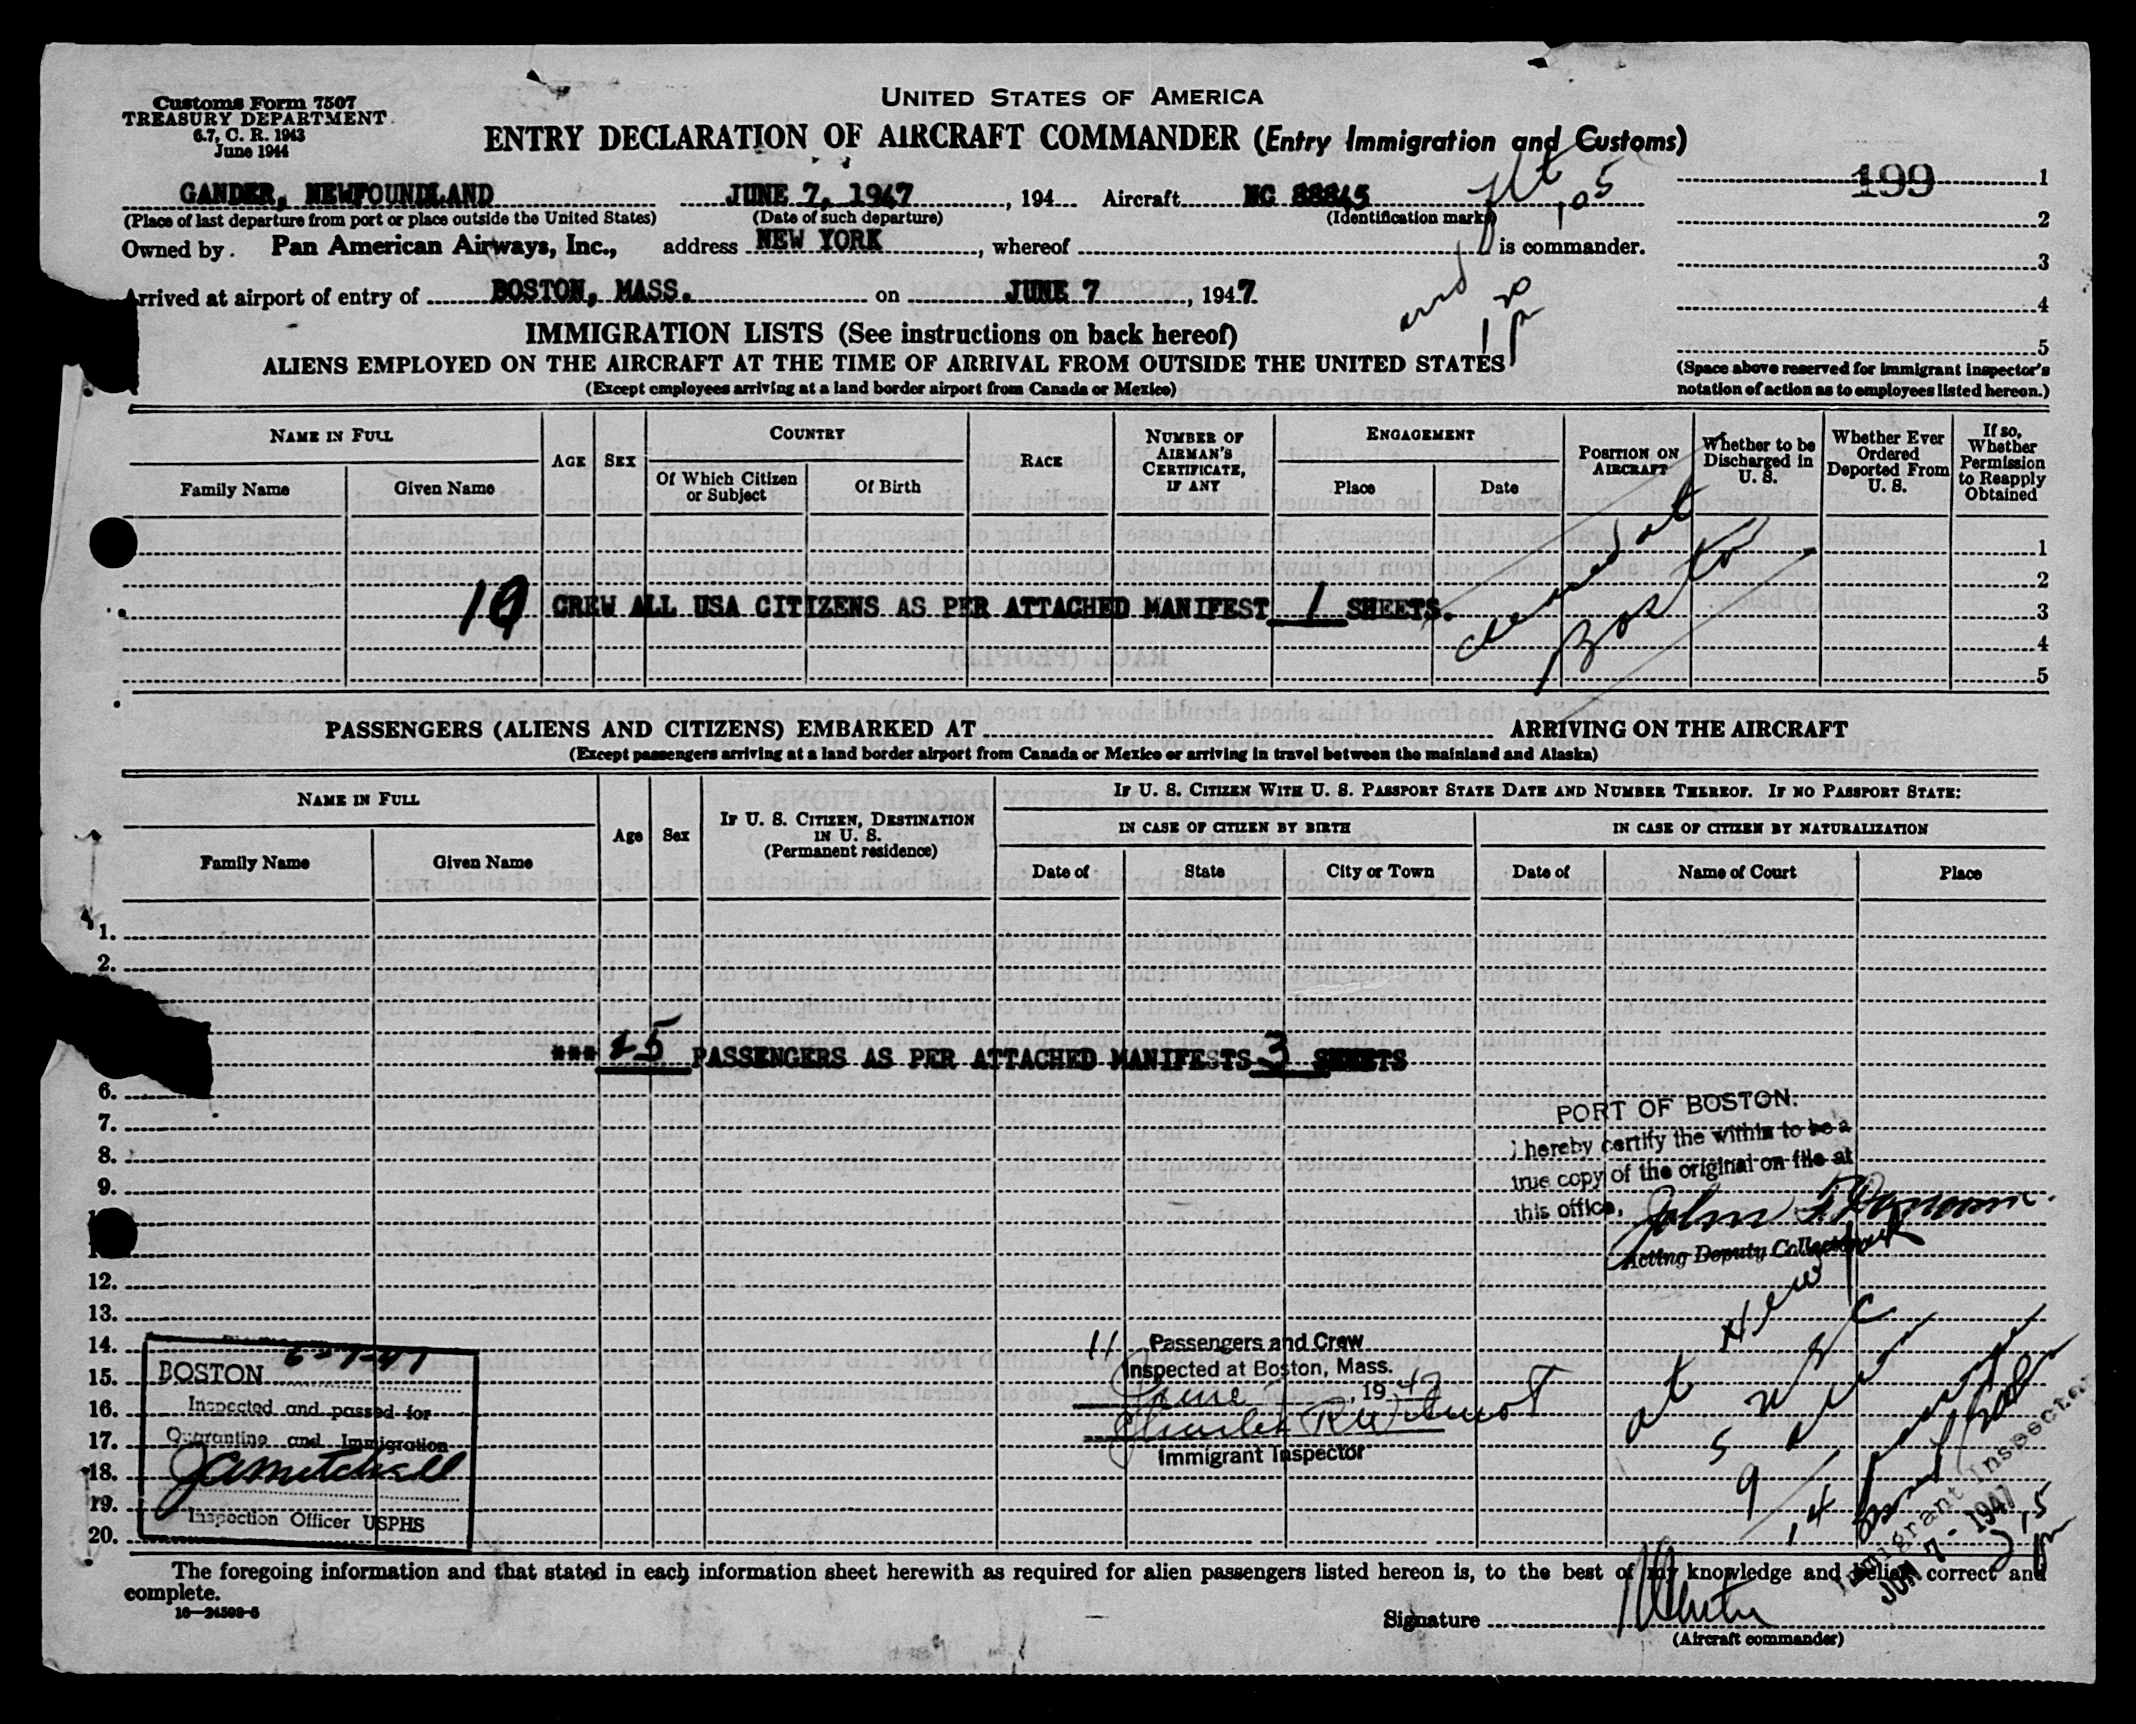 Customs Form 7507
TREASURY DEPARTMENT
6.7, C. R. 1943
June 1944
UNITED STATES OF AMERICA
ENTRY DECLARATION OF AIRCRAFT COMMANDER (Entry Immigration and Customs)
GANDER, NEWFOUNDLAND JUNE 7, 1947, 194 Aircraft NC 88845
(Place of last departure from port or place outside the United States) (Date of such departure) (Identification marks)
Owned by. Pan American Airways, Inc., address NEW YORK, whereof is commander.
Arrived at airport of entry of BOSTON, MASS. on JUNE 7, 1947.
199 1
2
3
4
5
(Space above reserved for immigrant inspector's
notation of action as to employees listed hereon.)
IMMIGRATION LISTS (See instructions on back hereof)
ALIENS EMPLOYED ON THE AIRCRAFT AT THE TIME OF ARRIVAL FROM OUTSIDE THE UNITED STATES
(Except employees arriving at a land border airport from Canada or Mexico)
NAME IN FULL
Family Name Given Name
AGE SEX
COUNTRY
Of Which Citizen or Subject
Of Birth
RACE
NUMBER OF AIRMAN'S CERTIFICATE, IF ANY
ENGAGEMENT
Place Date
POSITION ON AIRCRAFT
Whether to be Discharged in U. S.
Whether Ever Ordered Deported From U. S.
If so, Whether Permission to Reapply Obtained
1
2
CREW ALL USA CITIZENS AS PER ATTACHED MANIFEST 1 SHEETS. 3
4
5
cleared at
Boston
PASSENGERS (ALIENS AND CITIZENS) EMBARKED AT ARRIVING ON THE AIRCRAFT
(Except passengers arriving at a land border airport from Canada or Mexico or arriving in travel between the mainland and Alaska)
NAME IN FULL
Family Name Given Name
Age Sex
IF U. S. CITIZEN, DESTINATION IN U. S.
(Permanent residence)
IF U. S. CITIZEN WITH U. S. PASSPORT STATE DATE AND NUMBER THEREOF. IF NO PASSPORT STATE:
IN CASE OF CITIZEN BY BIRTH IN CASE OF CITIZEN BY NATURALIZATION
Date of State City or Town Date of Name of Court Place
1.
2.
*** 25 PASSENGERS AS PER ATTACHED MANIFESTS 3 SHEETS
6.
7.
8.
9.
12.
13.
14.
15.
16.
17.
18.
19.
20.
PORT OF BOSTON.
I hereby certify the within to be a
true copy of the original on file at
this office,
Acting Deputy Collector
BOSTON 6-7-47
Inspected and passed for
Quarantine and Immigration
J A Mitchell
Inspection Officer USPHS
11 Passengers and Crew
Inspected at Boston, Mass.
June 7, 1947
Charles R Wilmot
Immigrant Inspector
at New York
Immigrant Inspector
JUN 7 - 1947
The foregoing information and that stated in each information sheet herewith as required for alien passengers listed hereon is, to the best of my knowledge and belief, correct and
complete.
16—24509-5
Signature
(Aircraft commander)